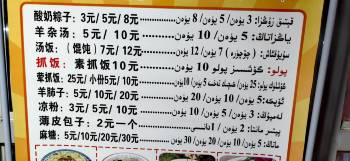 酸奶粽子: 3元/5元/8元 قېتىق زوڭزا: 3 يۈەن/ 5 يۈەن/ 8 يۈەن
羊杂汤: 5元/ 10元 5 يۈەن/ 10 يۈەن
汤饭: (馄饨) 7元/ 12元 سۇيۇقئاش: (چۆچۈرە) 7 يۈەن/ 12 يۈەن
抓饭: 素抓饭10元 پولو: گۆشسىز پولو 10 يۈەن
荤抓饭: 25元/ 小份5元/ 10元 گۆشلۈك پولو: 25 يۈەن/ 5 يۈەن/ 10 يۈەن
羊肺子: 5元/ 10元/ 20元 ئۆپكە: 5 يۈەن/ 10 يۈەن/ 20 يۈەن
凉粉: 3元/ 5元/ 10元 لەڭپۇڭ: 3 يۈەن/ 5 يۈەن/ 10 يۈەن
薄皮包子: 2元一个 پېتىر مانتا: 2 يۈەن/ 1 دانىسى
麻糖: 5元/10元/20元/30元 ماتاڭ: 5 يۈەن/ 10 يۈەن/ 20 يۈەن/ 30 يۈەن